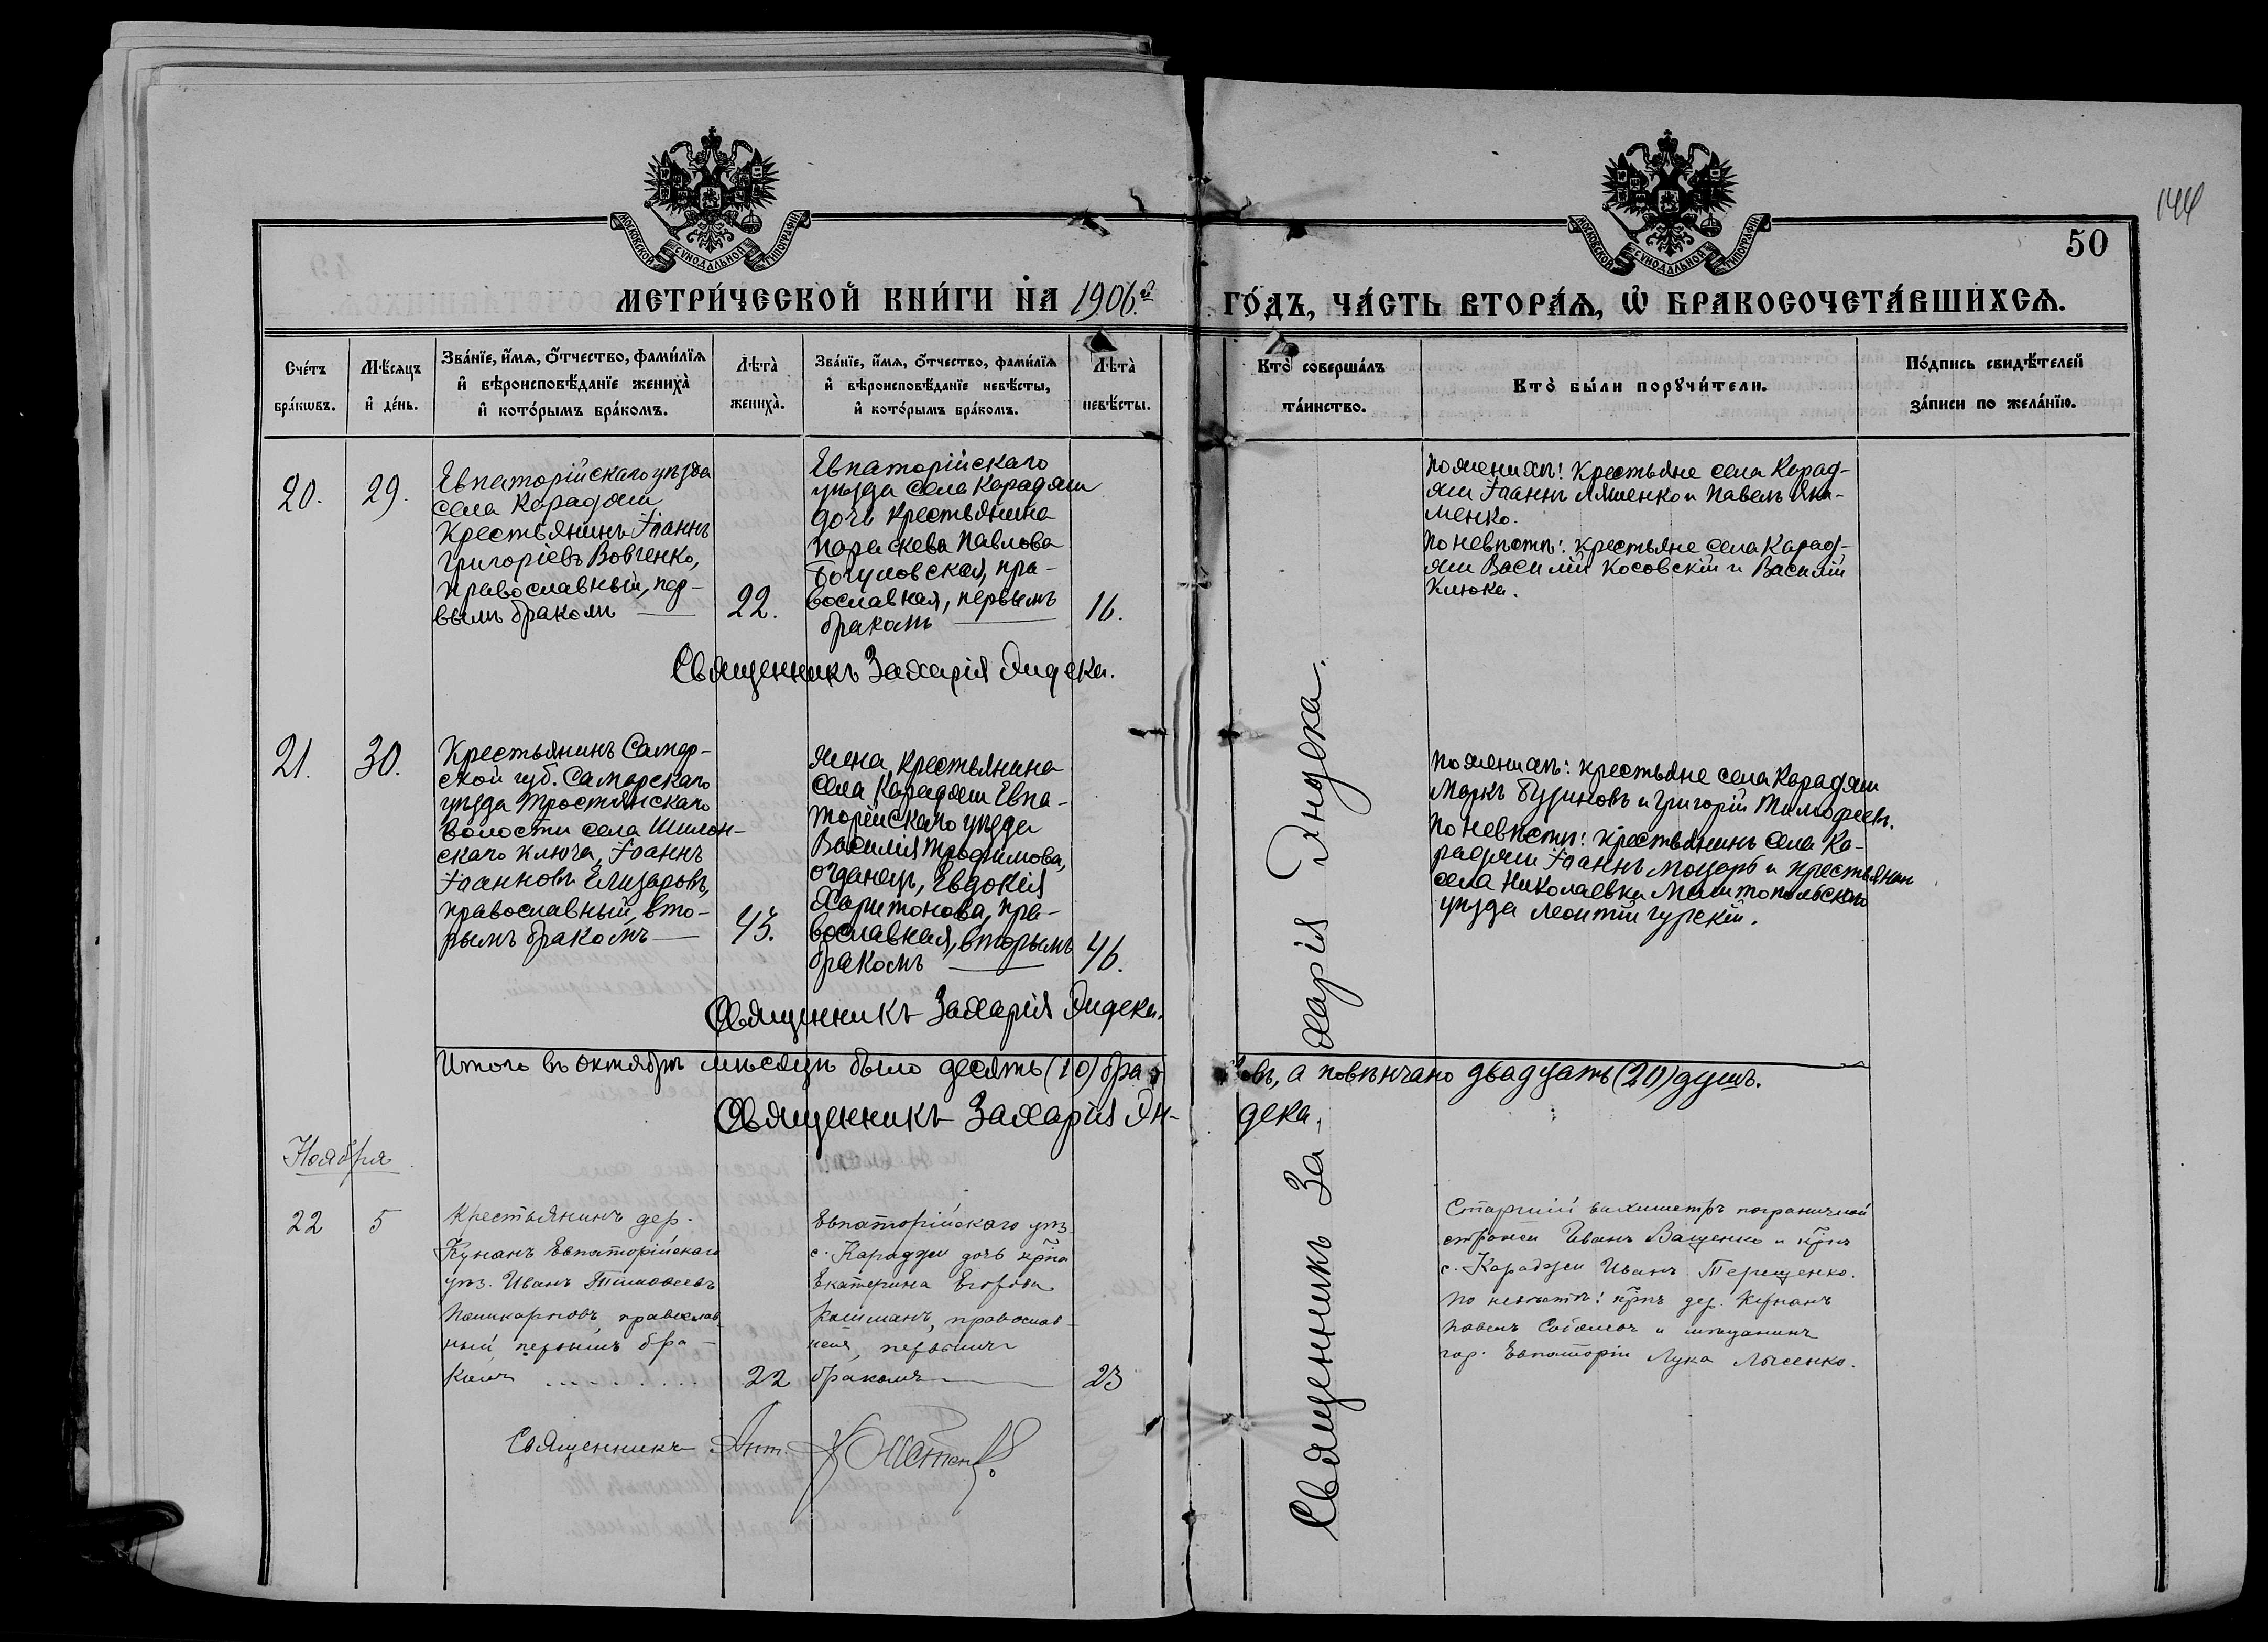 144
50
МОСКОВСКОЙ СУНОДАЛЬНОЙ ТИПОГРАФІИ
МОСКОВСКОЙ СУНОДАЛЬНОЙ ТИПОГРАФІИ
МЕТРИ́ЧЕСКОЙ КНИ́ГИ НА 1906.й ГО́ДЪ, ЧА́СТЬ ВТОРА́Ѧ, Ѽ БРАКОСОЧЕТА́ВШИХСѦ.
Сче́тъ
бра́кѡвъ.
Мѣ́сяцъ
и҆ де́нь.
Зва́нїе, и҆́мѧ, ѻ҆́тчество, фами́лїѧ
и҆ вѣроисповѣ́данїе жениха̀
и҆ кото́рымъ бра́комъ.
Лѣ́та̀
жениха̀.
Зва́нїе, и҆́мѧ, ѻ҆́тчество, фами́лїѧ
и҆ вѣроисповѣ́данїе невѣ́сты,
и҆ кото́рымъ бра́комъ.
Лѣ́та̀
невѣ́сты.
Кто̀ соверша́лъ
та́инство.
Кто̀ бы́ли порꙋчи́тели.
По́дпись свидѣ́телей
за́писи по жела́нїю.
20.
29.
Евпаторійскаго уѣзда
села Караджи
Крестьянинъ Іоаннъ
Григоріевъ Вовченко,
православный, пер-
вымъ бракомъ
22.
Евпаторійскаго
уѣзда села Караджи
дочь крестьянина
Параскева Павлова
православная, первымъ
бракомъ
16.
По женихѣ: Крестьяне села Карад-
жи Іоаннъ Ляшенко и Павелъ Яки-
менко.
По невѣстѣ: крестьяне села Карад-
жи Василій Косовскій и Василій
Клюка.
Священникъ Захарія Индека.
21.
30.
Крестьянинъ Самар-
ской губ. Самарскаго
уѣзда Тростянскаго
волости села Шилан-
скаго ключа, Іоаннъ
Іоанновъ Елизаровъ,
православный, вто-
рымъ бракомъ
43.
жена крестьянина
села Караджи Евпа-
торійскаго уѣзда
Василія Трофимова,
Евдокія
Харитонова, пра-
вославная, вторымъ
бракомъ
46.
По женихѣ: крестьяне села Караджи
Маркъ Бузиновъ и Григорій Тимофеевъ.
По невѣстѣ: крестьянинъ села Ка-
раджи Іоаннъ Моцарь и крестьянин
села Николаевки Мелитопольскаго
уѣзда Леонтій Гурскій.
Священникъ Захарія Индека.
Итого въ октябрѣ мѣсяцѣ было десять (10) браковъ, а повѣнчано двадцать (20) душъ.
Священникъ Захарія Индека.
Священникъ Захарія Индека.
Ноября
22
5
Крестьянинъ дер.
Кунанъ Евпаторійскаго
уѣз. Иванъ Тимоѳеевъ
Поликарповъ, православ-
ный, первымъ бра-
комъ
22
Евпаторійскаго уѣз.
с. Караджи дочь кр-на
Екатерина Егорова
православ-
ная, первымъ
бракомъ
23
Старшій вахмистръ пограничной
стражи Иванъ Ващенко и кр-нъ
с. Караджи Иванъ Терещенко.
По невѣстѣ: кр-нъ дер. Кунанъ
Павелъ и мѣщанинъ
гор. Евпаторіи Лука Лысенко.
Священникъ Ант.